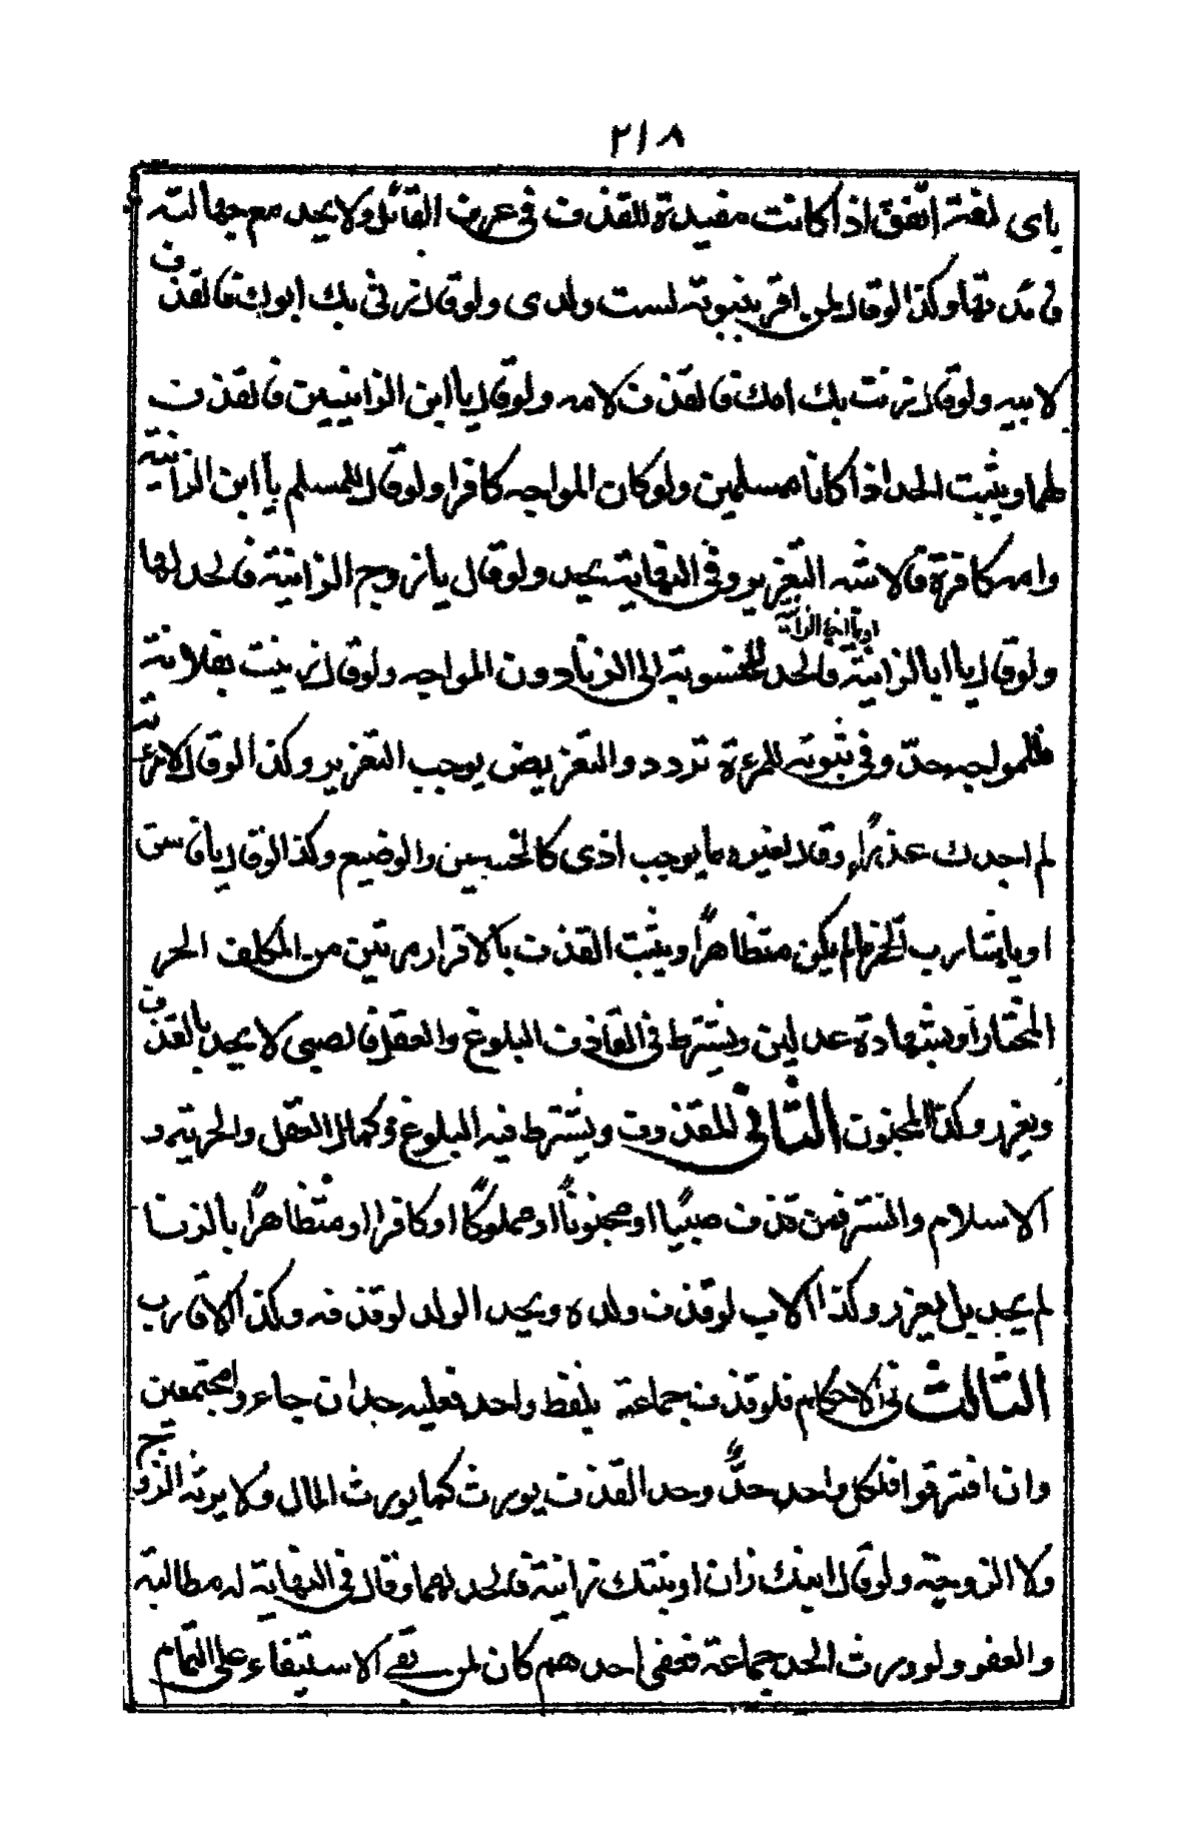 ٢١٨
باى لغة اتفق اذا كانت مفيدة للقذف فى عرف القائل ولا يحد مع جهالته
فائدتها وكذا لو قال لمن اقر ببنوته لست ولدى ولو قال زنى بك ابوك فالقذف
لابيه ولو قال زنت بك امك فالقذف لامه ولو قال يا ابن الزانيين فالقذف
لهما ويثبت الحد اذا كانا مسلمين ولو كان المواجه كافرا ولو قال للمسلم يا ابن الزانية
وامه كافرة فالاشبه التعزير وفى النهاية يحد ولو قال يا زوج الزانية فالحد لها
او يا اخا الزانية
ولو قال يا ابا الزانية فالحد للمنسوبة الى الزنا دون المواجه ولو قال زنيت بفلانة
فللمواجه حدّ وفى ثبوته للمرءة تردد والتعريض يوجب التعزير وكذا لو قال لامرءته
لم اجدك عذراًء وقال لغيره ما يوجب اذى كالخسيس والوضيع وكذا لو قال يا فاسق
او يا شارب الخمر ما لم يكن متظاهراً ويثبت القذف بالاقرار مرتين من المكلف الحر
المختار او بشهادة عدلين ويشترط فى القاذف البلوغ والعقل فالصبى لا يحد بالقذف
ويعزر وكذا المجنون الثانى للمقذوف ويشترط فيه البلوغ وكمال العقل والحرية و
الاسلام والستر فمن قذف صبيًا او مجنوناً او مملوكًا او كافرا او متظاهراً بالزنا
لم يحد بل يعزر وكذا الاب لو قذف ولده ويحد الولد لو قذفه وكذا الاقارب
الثالث فى الاحكام فلو قذف جماعة بلفظ واحد فعليه حد ان جاءوا مجتمعين
وان افترقوا فلكل واحد حدٌّ وحد القذف يورث كما يورث المال ولا يرثه الزوج
ولا الزوجة ولو قال ابنك زان او بنتك زانية فالحد لهما وقال فى النهاية له مطالبة
والعفو ولو ورث الحد جماعة فعفى احدهم كان لمن بقى الاستيفاء على التمام